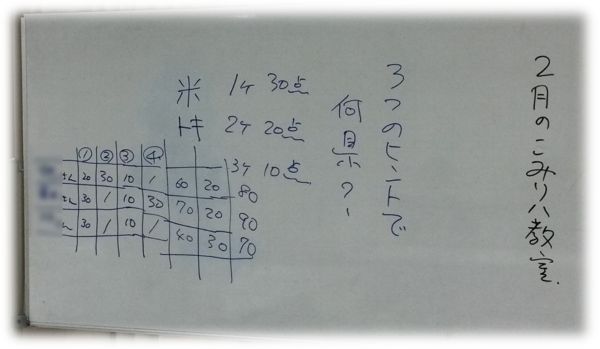 2月のこみリハ教室.
3つのヒントで
何県?
米 1ケ 30点
トキ 2ケ 20点
3ケ 10点
① ② ③ ④
さん 20 30 10 / 60 20 80
さん 30 / 10 30 70 20 90
ん 30 / 10 / 40 30 70